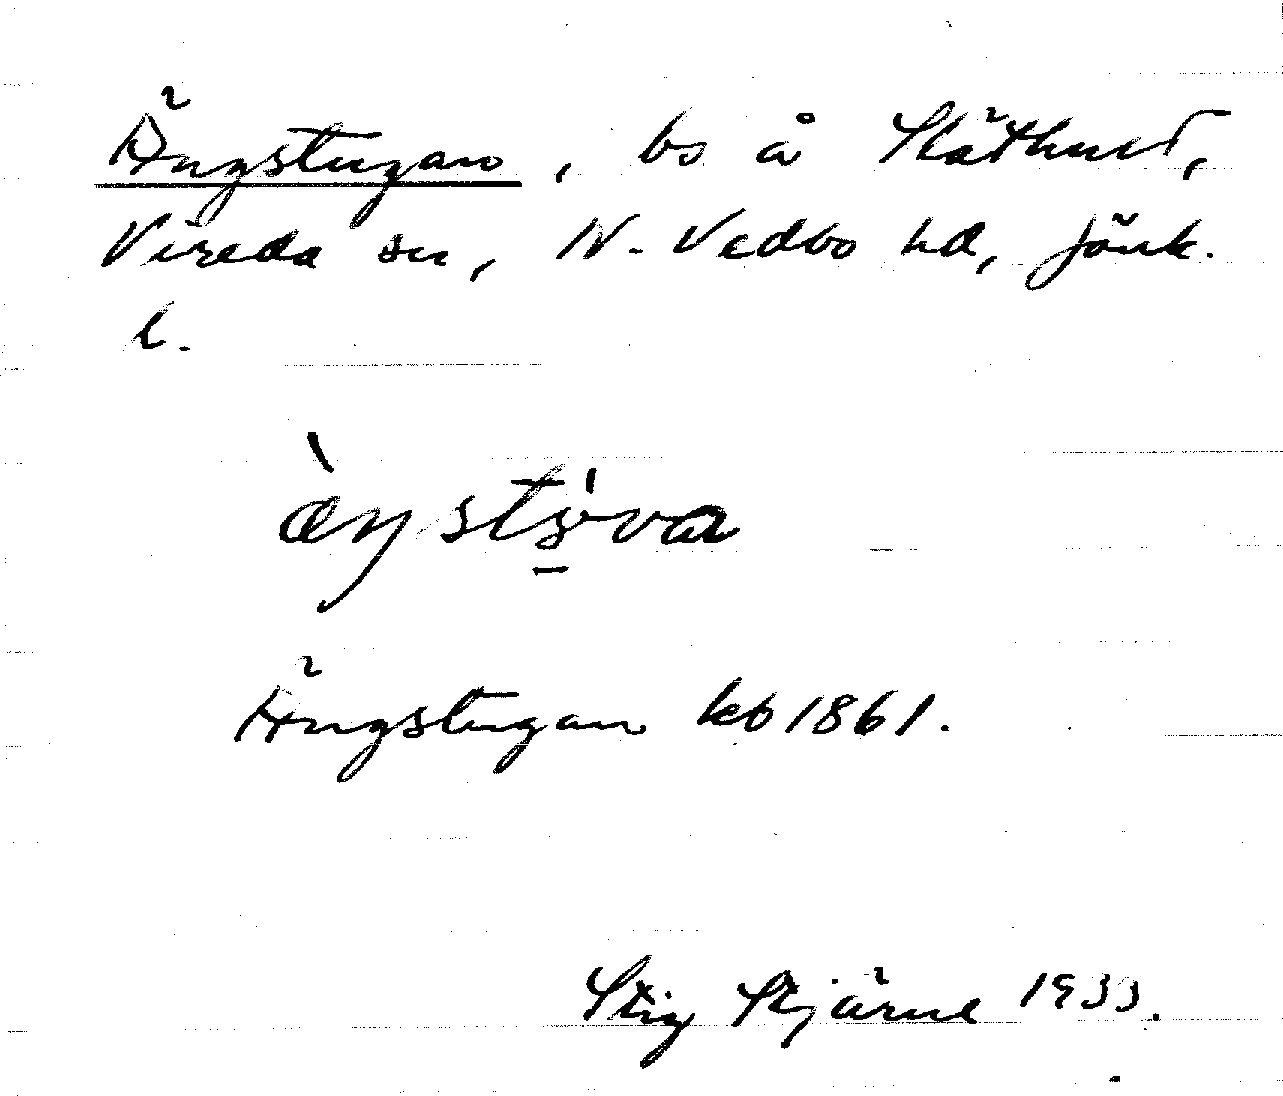 Ängstugan, bs å Släthult,
Vireda sn, N. Vedbo hd, Jönk.
l.
æ̀ŋstö̀va
Ängstugan kb 1861.
Stig Stjärne 1933.